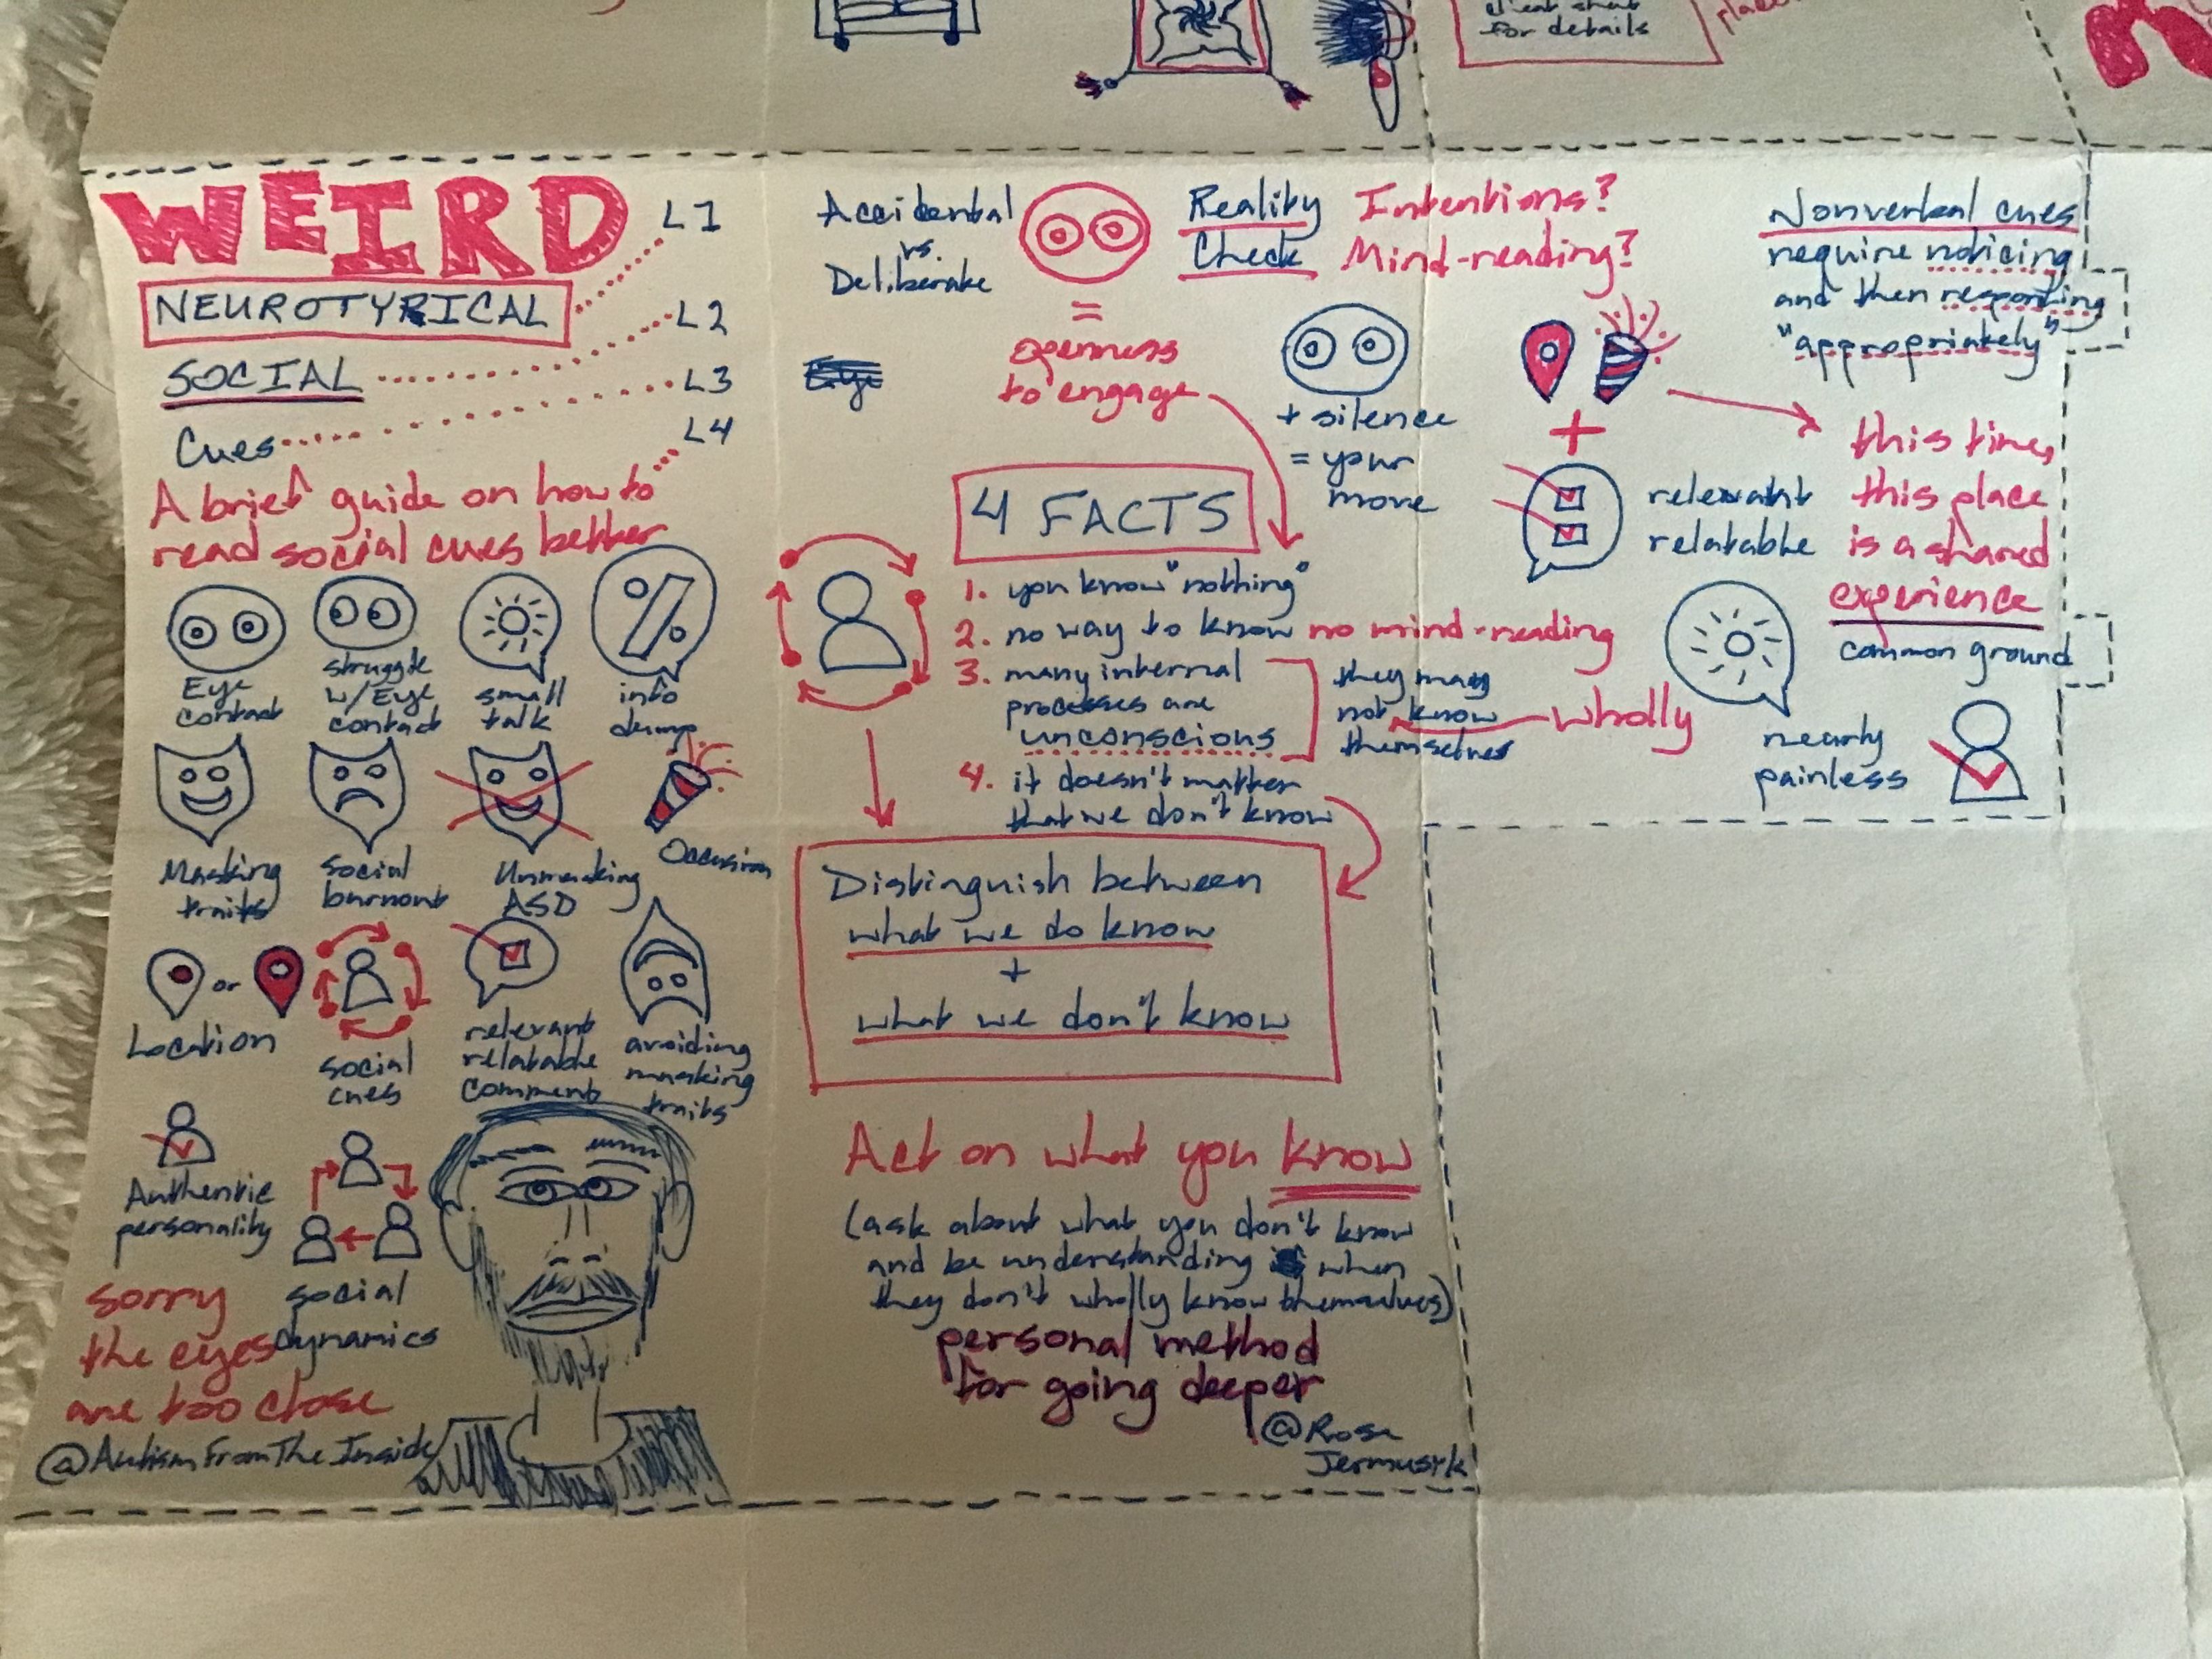 for details
WEIRD
L1
NEUROTYPICAL
L2
SOCIAL
L3
Cues
L4
A brief guide on how to
read social cues better
Eye
contact
struggle
w/Eye
contact
small
talk
info
dump
Masking
traits
social
burnout
Unmasking
ASD
Occasion
or
Location
social
cues
relevant
relatable
comment
avoiding
masking
traits
Authentic
personality
social
dynamics
sorry
the eyes
are too close
@AutismFromTheInside
Accidental
vs.
Deliberate
Eye
=
openness
to engage
Reality
Check
Intentions?
Mind-reading?
+ silence
= your
move
4 FACTS
1. you know "nothing"
2. no way to know no mind-reading
3. many internal
processes are
unconscious
they may
not know
themselves
wholly
4. it doesn't matter
that we don't know
Distinguish between
what we do know
+
what we don't know
Act on what you know
(ask about what you don't know
and be understanding when
they don't wholly know themselves)
personal method
for going deeper
@Rose
Jermusyk
Nonverbal cues
require noticing
and then responding
"appropriately"
+
relevant
relatable
this time,
this place
is a shared
experience
common ground
nearly
painless